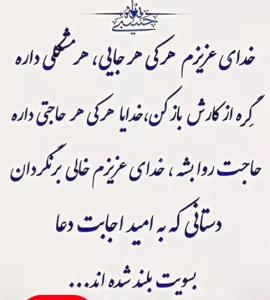 خدای عزیزم هر کی هر جایی، هر مشکلی داره
گره از کارش باز کن، خدایا هر کی هر حاجتی داره
حاجت روا بشه، خدای عزیزم خالی برنگردان
دستانی که به امید اجابت دعا
بسویت بلند شده اند...